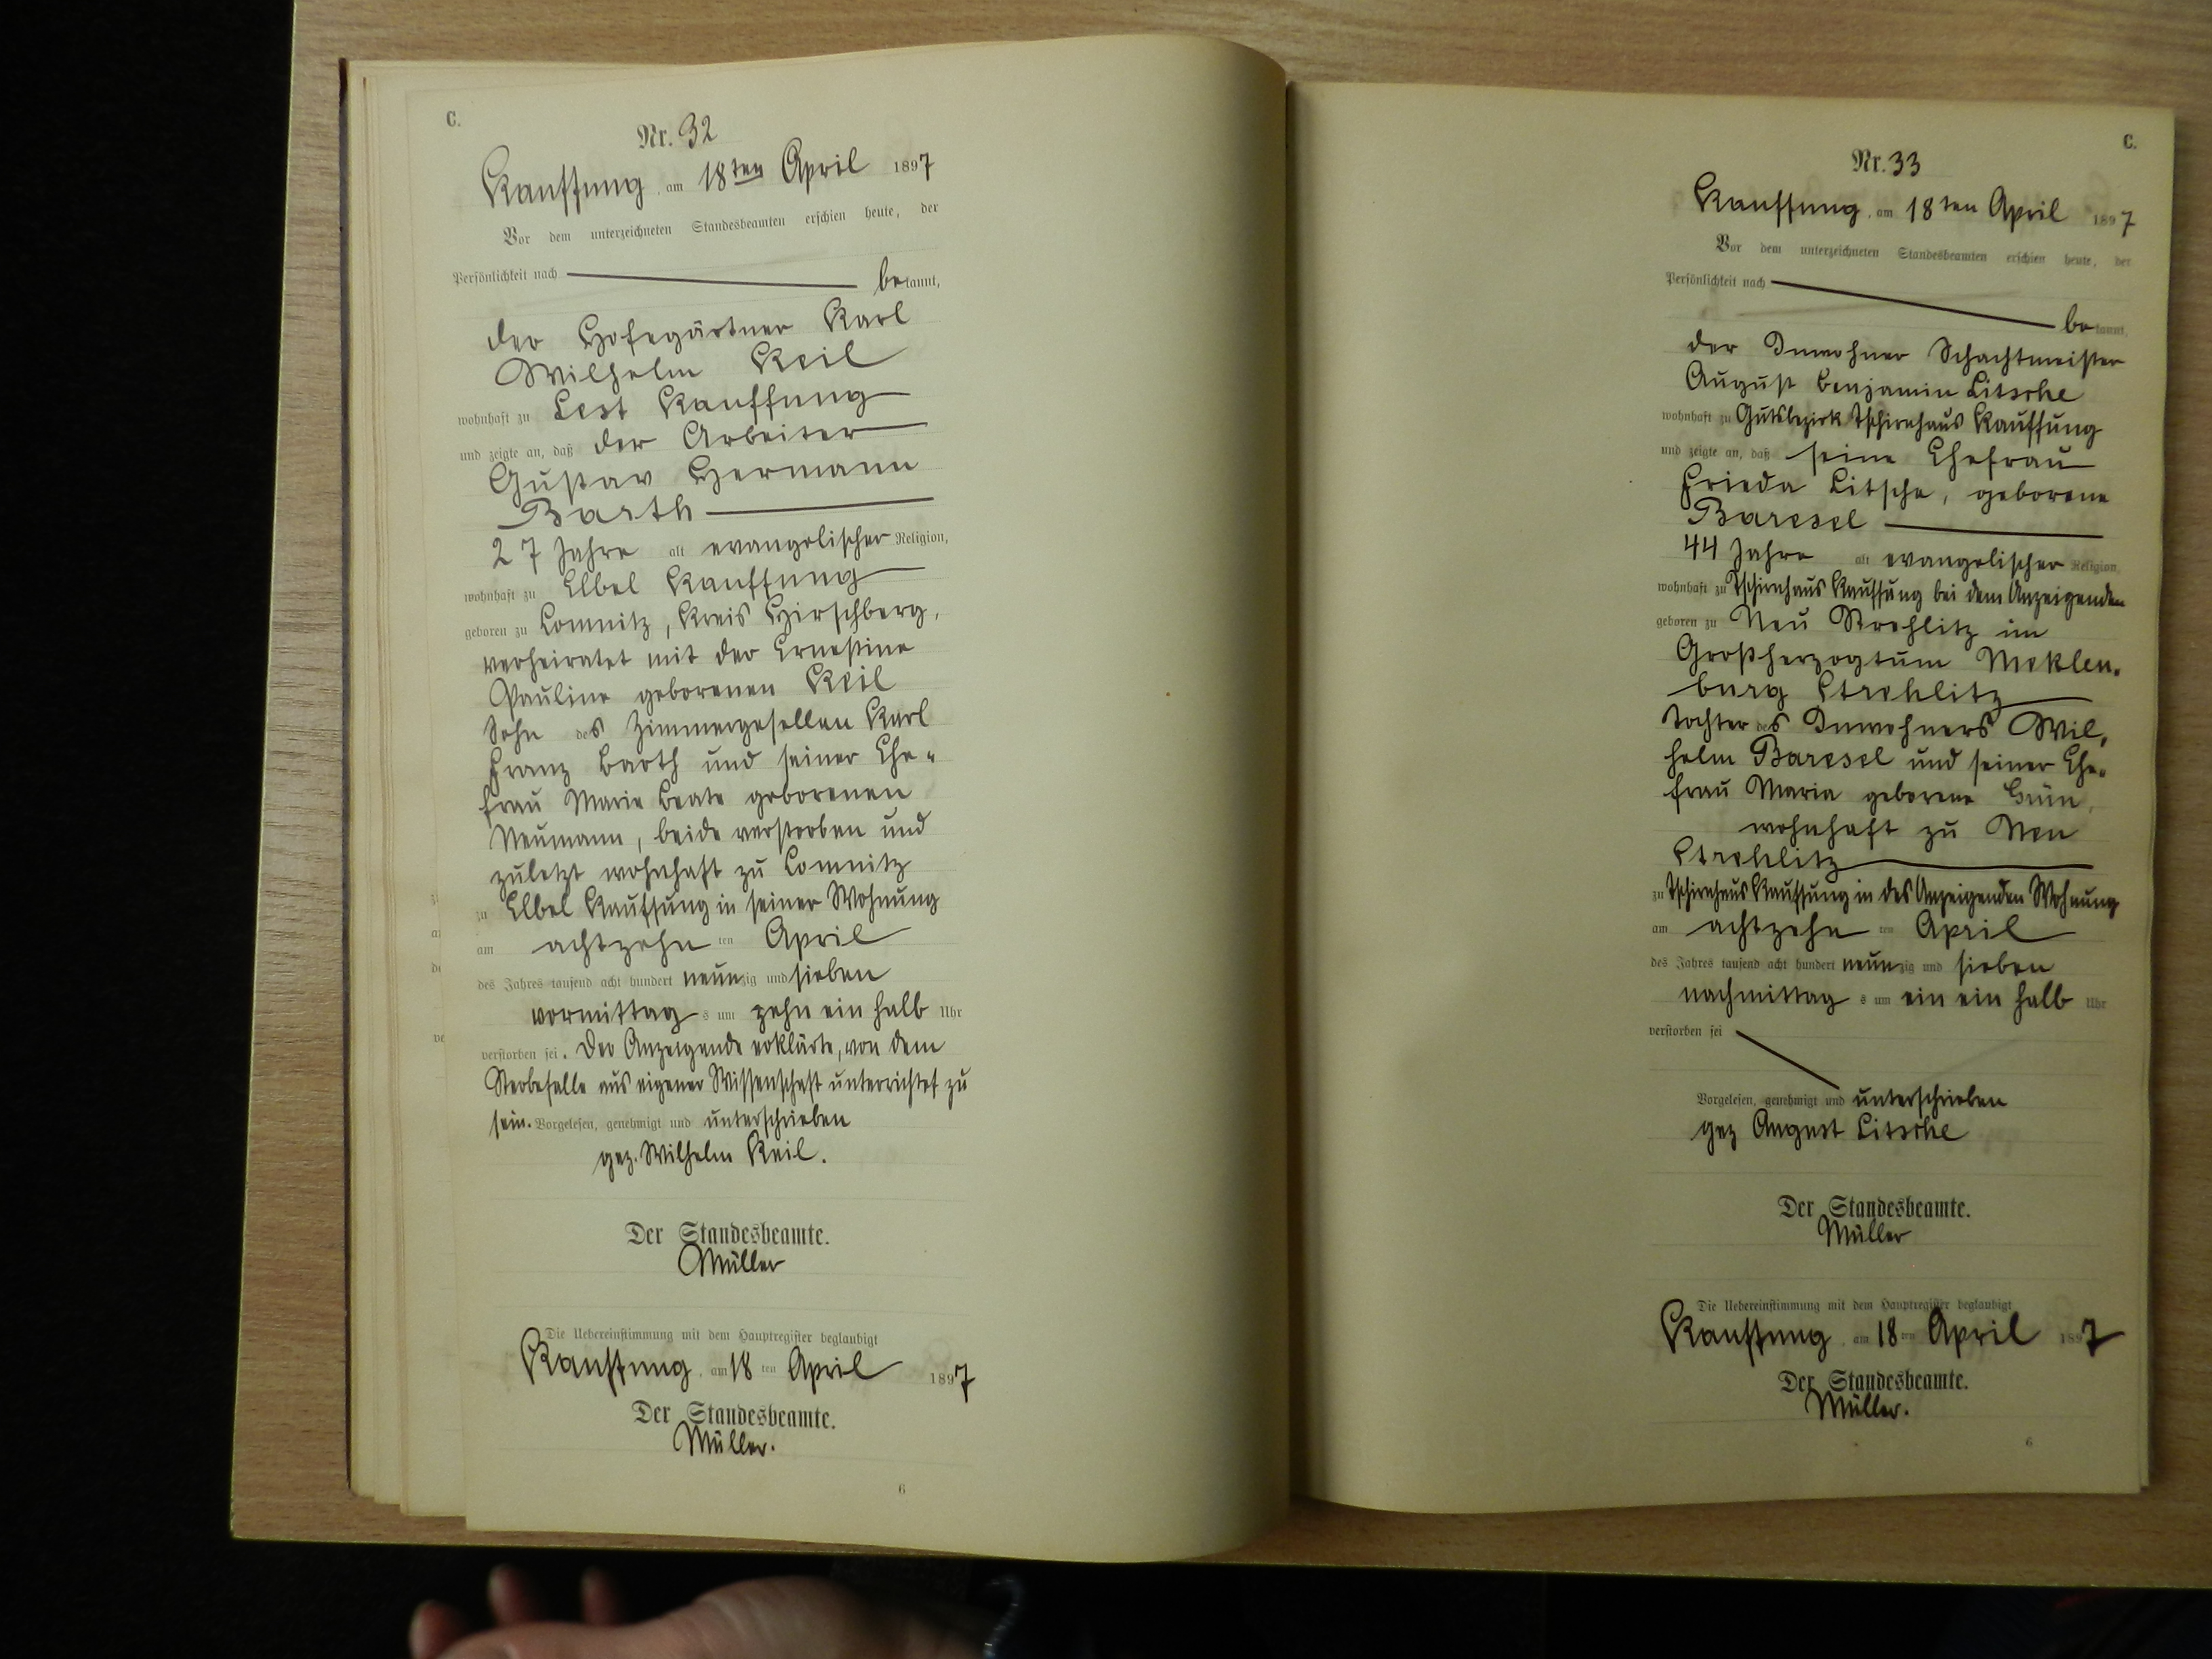 C.
Nr. 32
Kauffung, am 18ten April 1897
Vor dem unterzeichneten Standesbeamten erschien heute, der
Persönlichkeit nach bekannt,
der Hofegärtner Karl
Wilhelm Keil
wohnhaft zu Lest Kauffung
und zeigte an, daß der Arbeiter
Gustav Hermann
Barth
27 Jahre alt evangelischer Religion,
wohnhaft zu Elbel Kauffung
geboren zu Lomnitz, Kreis Hirschberg,
verheiratet mit der Ernestine
Pauline geborenen Keil
Sohn des Zimmergesellen Karl
Franz Barth und seiner Ehe-
frau Marie Beate geborenen
Neumann, beide verstorben und
zuletzt wohnhaft zu Lomnitz
zu Elbel Kauffung in seiner Wohnung
am achtzehn ten April
des Jahres tausend acht hundert neunzig und sieben
vormittags um zehn ein halb Uhr
verstorben sei. Der Anzeigende erklärte, von dem
Sterbefalle aus eigener Wissenschaft unterrichtet zu
sein. Vorgelesen, genehmigt und unterschrieben
gez. Wilhelm Keil.
Der Standesbeamte.
Müller
Die Uebereinstimmung mit dem Hauptregister beglaubigt
Kauffung, am 18 ten April 1897
Der Standesbeamte.
Müller.
6
C.
Nr. 33
Kauffung, am 18ten April 1897
Vor dem unterzeichneten Standesbeamten erschien heute, der
Persönlichkeit nach
bekannt,
der Inwohner Schachtmeister
August Benjamin Litsche
wohnhaft zu Gutsbezirk Tschirnhaus Kauffung
und zeigte an, daß seine Ehefrau
Frieda Litsche, geborene
Baresel
44 Jahre alt evangelischer Religion,
wohnhaft zu Tschirnhaus Kauffung bei dem Anzeigenden
geboren zu Neu Strehlitz im
Großherzogtum Meklen-
burg Strehlitz
Tochter des Inwohners Wil-
helm Baresel und seiner Ehe-
frau Maria geborene Grün,
wohnhaft zu Neu
Strehlitz
zu Tschirnhaus Kauffung in des Anzeigenden Wohnung
am achtzehn ten April
des Jahres tausend acht hundert neunzig und sieben
nachmittags um ein ein halb Uhr
verstorben sei
Vorgelesen, genehmigt und unterschrieben
gez August Litsche
Der Standesbeamte.
Müller
Die Uebereinstimmung mit dem Hauptregister beglaubigt
Kauffung, am 18 ten April 1897
Der Standesbeamte.
Müller.
6